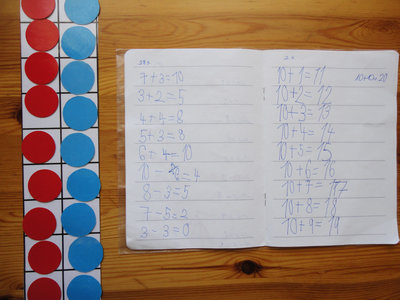 7+3=10
3+2=5
4+4=8
5+3=8
6+4=10
10-6=4
8-3=5
7-5=2
3-3=0
10+1=11
10+10=20
10+2=12
10+3=13
10+4=14
10+5=15
10+6=16
10+7=17
10+8=18
10+9=19